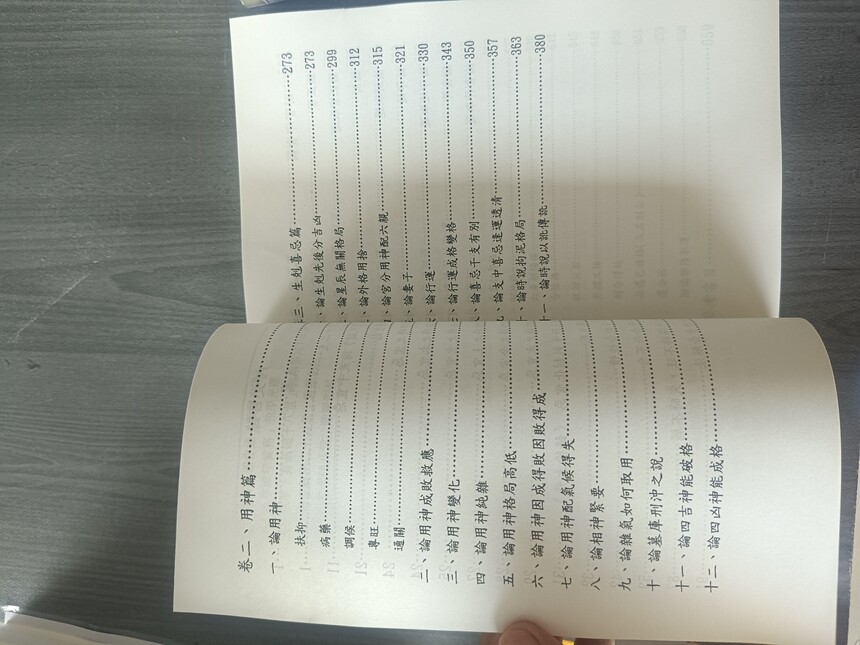 卷二、用神篇
一、論用神
扶抑
病藥
調候
專旺
通關
二、論用神成敗救應
三、論用神變化
四、論用神純雜
五、論用神格局高低
六、論用神因成得敗因敗得成
七、論用神配氣候得失
八、論相神緊要
九、論雜氣如何取用
十、論墓庫刑沖之說
十一、論四吉神能破格
十二、論四凶神能成格
三、生剋喜忌篇 273
、論生剋先後分吉凶 273
、論星辰無關格局 299
、論外格用捨 312
、論宮分用神配六親 315
、論妻子 321
、論行運 330
、論行運成格變格 343
、論喜忌干支有別 350
、論支中喜忌逢運透清 357
、論時說拘泥格局 363
十一、論時說以訛傳訛 380